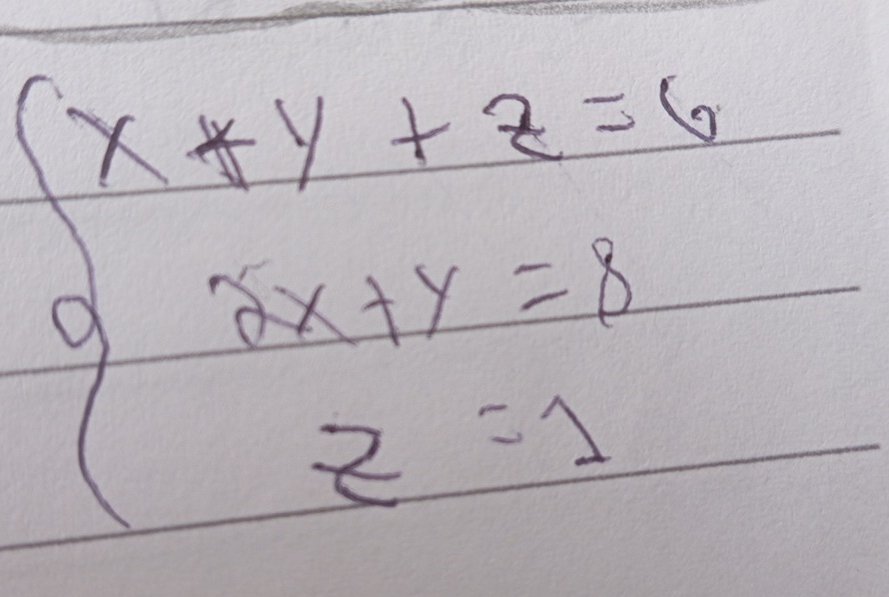 x + y + z = 6
2x + y = 8
z = 1